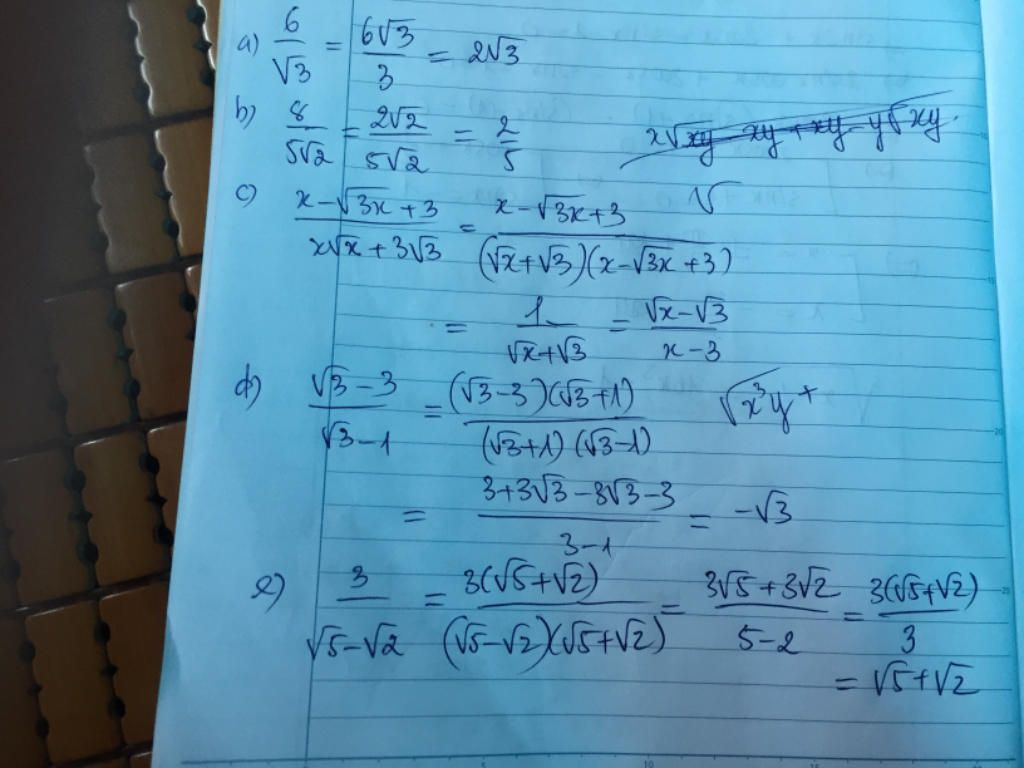 a) 6/√3 = 6√3/3 = 2√3
b) 8/5√2 = 2√2/5√2 = 2/5
x√xy - xy + xy - y√xy.
c) x-√3x+3/x√x+3√3 = x-√3x+3/(√x+√3)(x-√3x+3) √
= 1/√x+√3 = √x-√3/x-3
d) √3-3/√3-1 = (√3-3)(√3+1)/(√3+1)(√3-1) √x³y+
= 3+3√3-8√3-3/3-1 = -√3
e) 3/√5-√2 = 3(√5+√2)/(√5-√2)(√5+√2) = 3√5+3√2/5-2 = 3(√5+√2)/3
= √5+√2